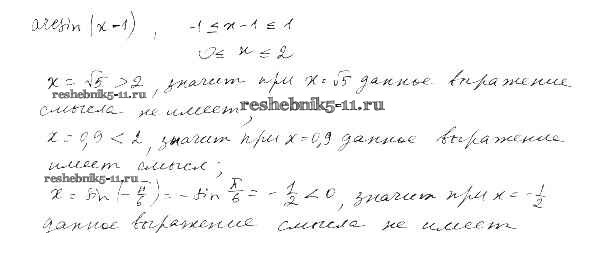 arcsin(x-1), -1 ≤ x-1 ≤ 1
0 ≤ x ≤ 2
x = √5 > 2, значит при x = √5 данное выражение
reshebnik5-11.ru
смысла не имеет;
reshebnik5-11.ru
x = 0,9 < 2, значит при x = 0,9 данное выражение
имеет смысл;
reshebnik5-11.ru
x = sin(-π/6) = -sin π/6 = -1/2 < 0, значит при x = -1/2
данное выражение смысла не имеет